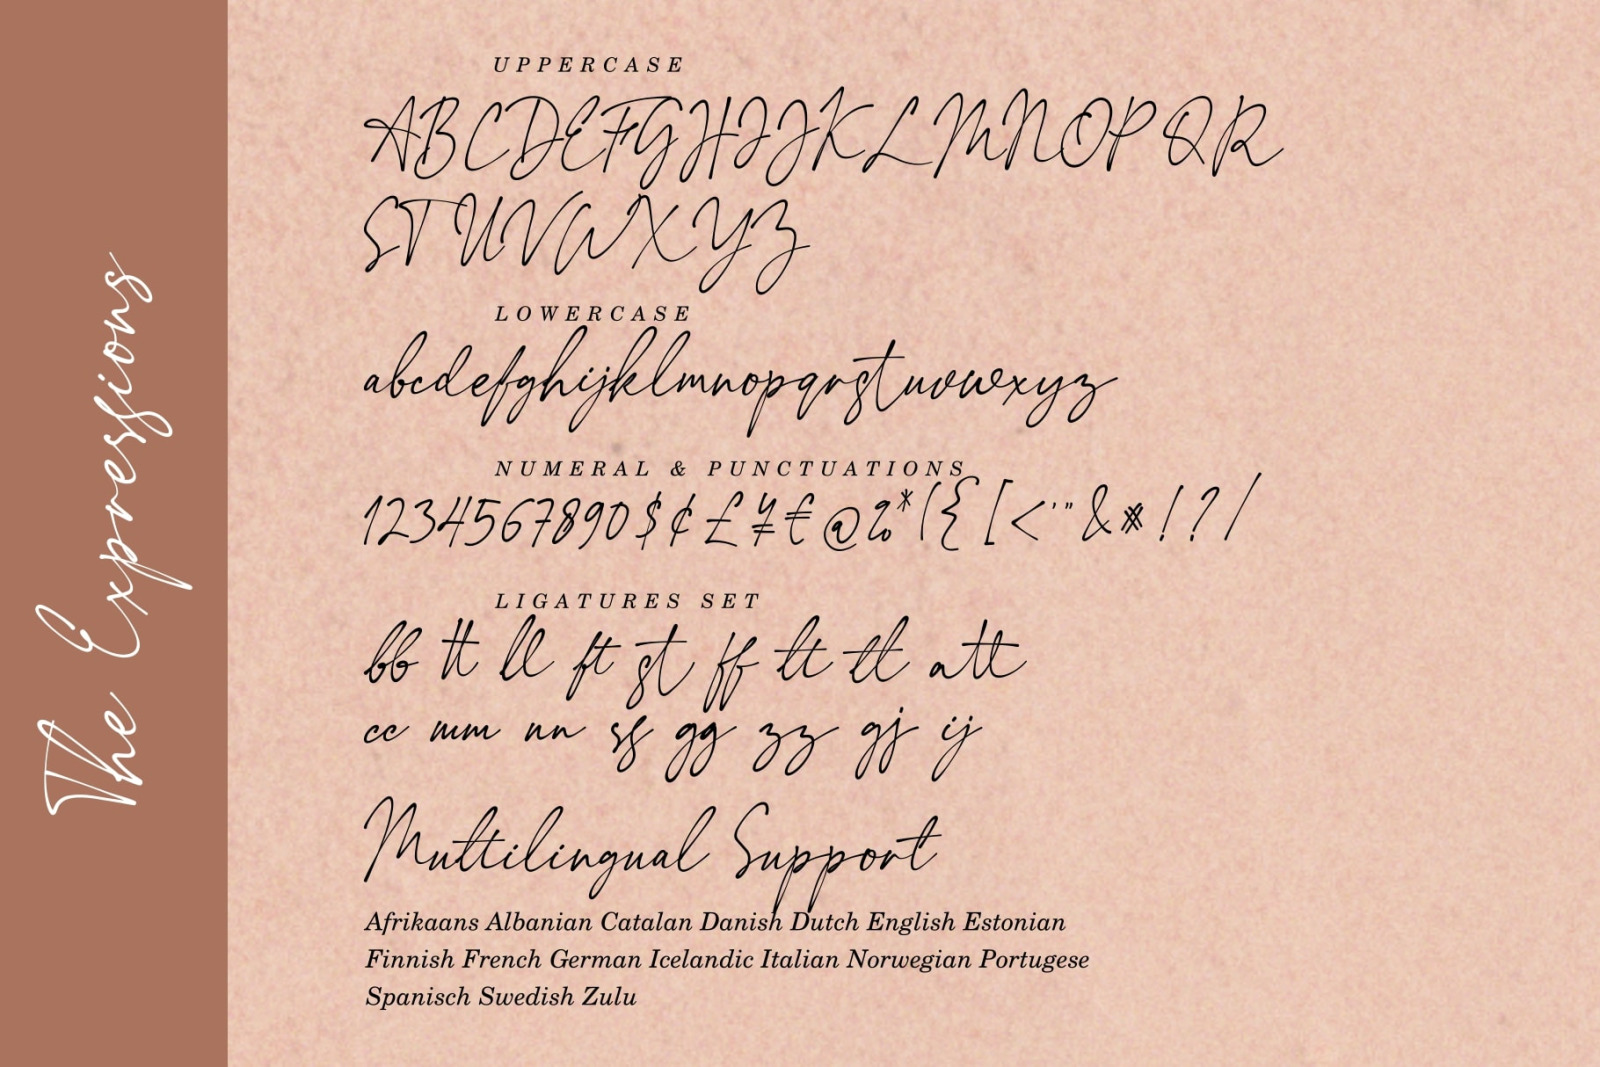 The Expressions
UPPERCASE
ABCDEFGHIJKLMNOPQR
STUVWXYZ
LOWERCASE
abcdefghijklmnopqrstuvwxyz
NUMERAL & PUNCTUATIONS
1234567890$¢£¥€@%*({[<'"&#!?/
LIGATURES SET
bb tt ll ft st ff lt tl att
cc mm nn ss gg zz gj ij
Multilingual Support
Afrikaans Albanian Catalan Danish Dutch English Estonian
Finnish French German Icelandic Italian Norwegian Portugese
Spanisch Swedish Zulu